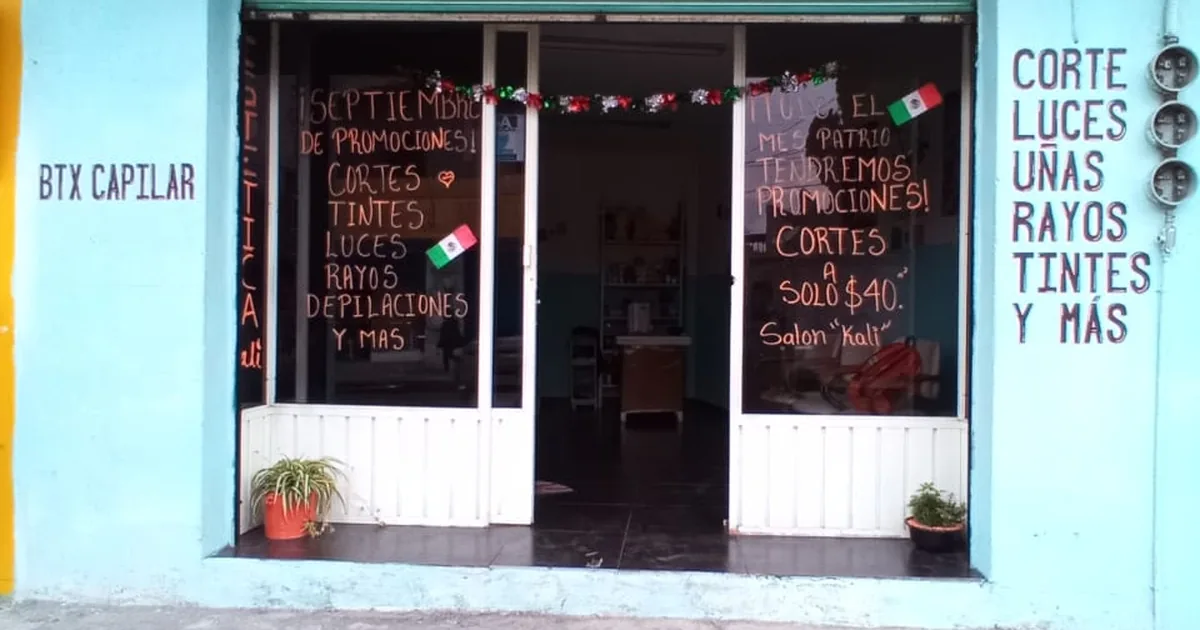 BTX CAPILAR
¡SEPTIEMBRE
DE PROMOCIONES!
CORTES
TINTES
LUCES
RAYOS
DEPILACIONES
Y MAS
EL
MES PATRIO
TENDREMOS
PROMOCIONES!
CORTES
A
SOLO $40.
Salon "Kali"
CORTE
LUCES
UÑAS
RAYOS
TINTES
Y MÁS